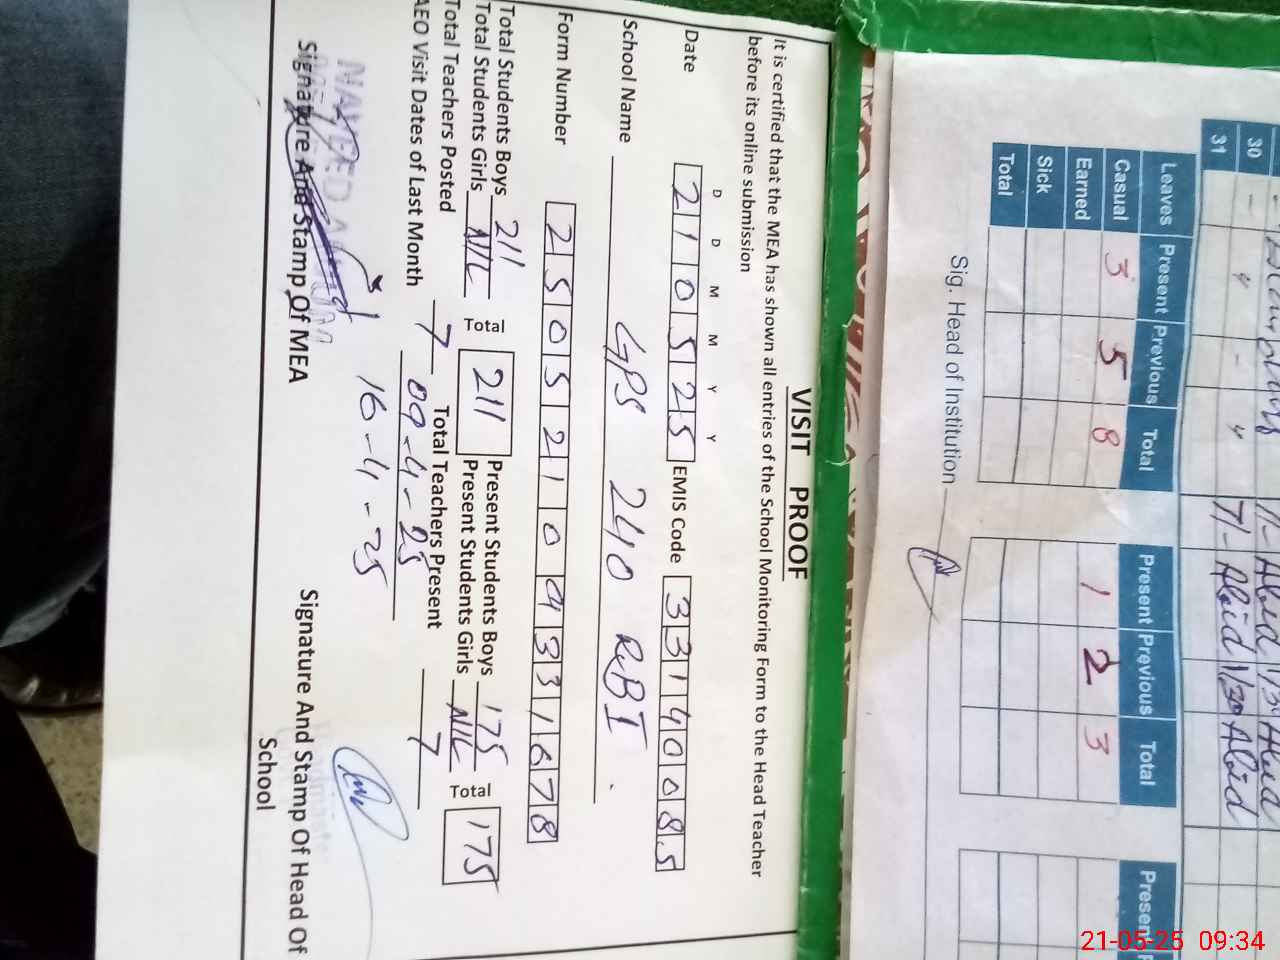 VISIT PROOF
It is certified that the MEA has shown all entries of the School Monitoring Form to the Head Teacher
before its online submission
D D M M Y Y
Date 210525 EMIS Code 33140085
School Name GPS 240 RBI.
Form Number 25052109331678
Total Students Boys 211 Present Students Boys 175
Total Students Girls NIL Total 211 Present Students Girls NIL Total 175
Total Teachers Posted 7 Total Teachers Present 7
AEO Visit Dates of Last Month 09-4-25
16-4-25
NAVEED
Signature And Stamp Of MEA
Signature And Stamp Of Head Of
School
30
31 7/- Abid 1/30 Abid
Leaves Present Previous Total Present Previous Total Present
Casual 3 5 8 1 2 3
Earned
Sick
Total
Sig. Head of Institution
21-05-25 09:34